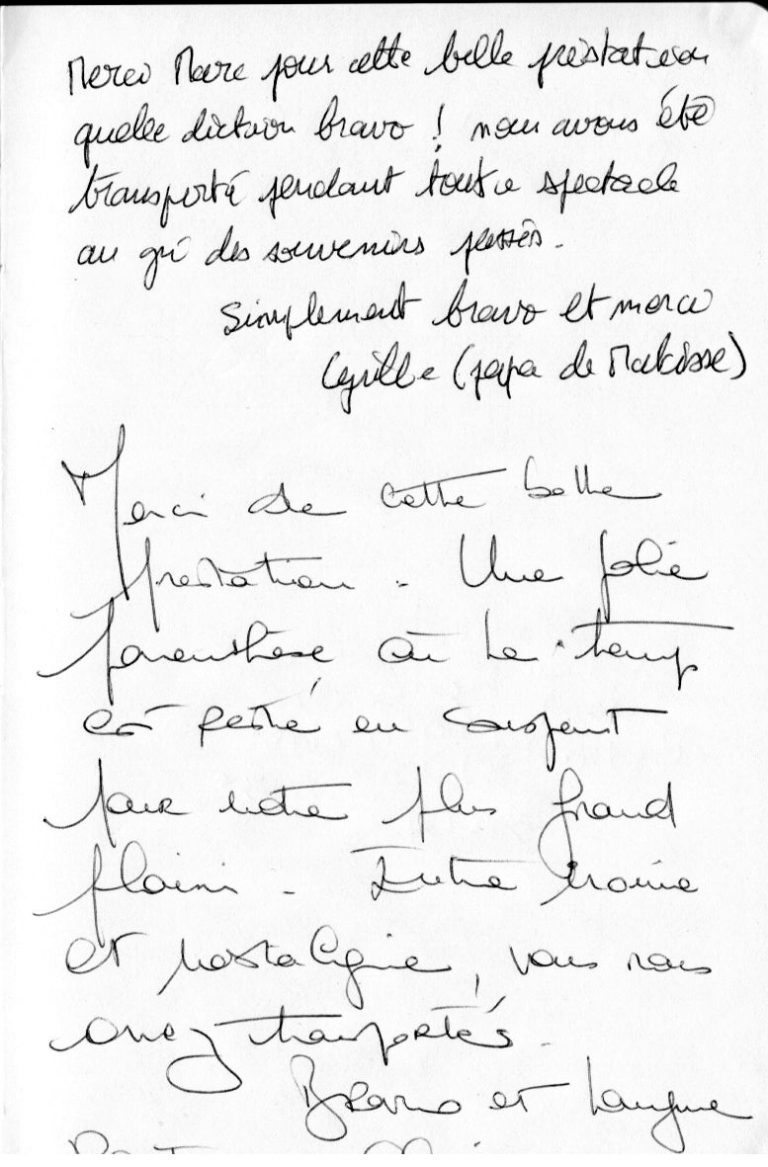 Merci Marc pour cette belle prestation
quelle diction bravo ! nous avons été
transporté pendant tout ce spectacle
au gré des souvenirs passés.
Simplement bravo et merci
Cyrille (papa de
Merci de cette belle
prestation. Une jolie
parenthèse où le temps
est resté en suspent
pour notre plus grand
plaisir. Entre ironie
et nostalgie, vous nous
avez transportés.
Bravo et longue